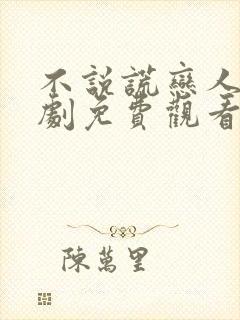 不説謊戀人
劇免費觀看
陳萬里